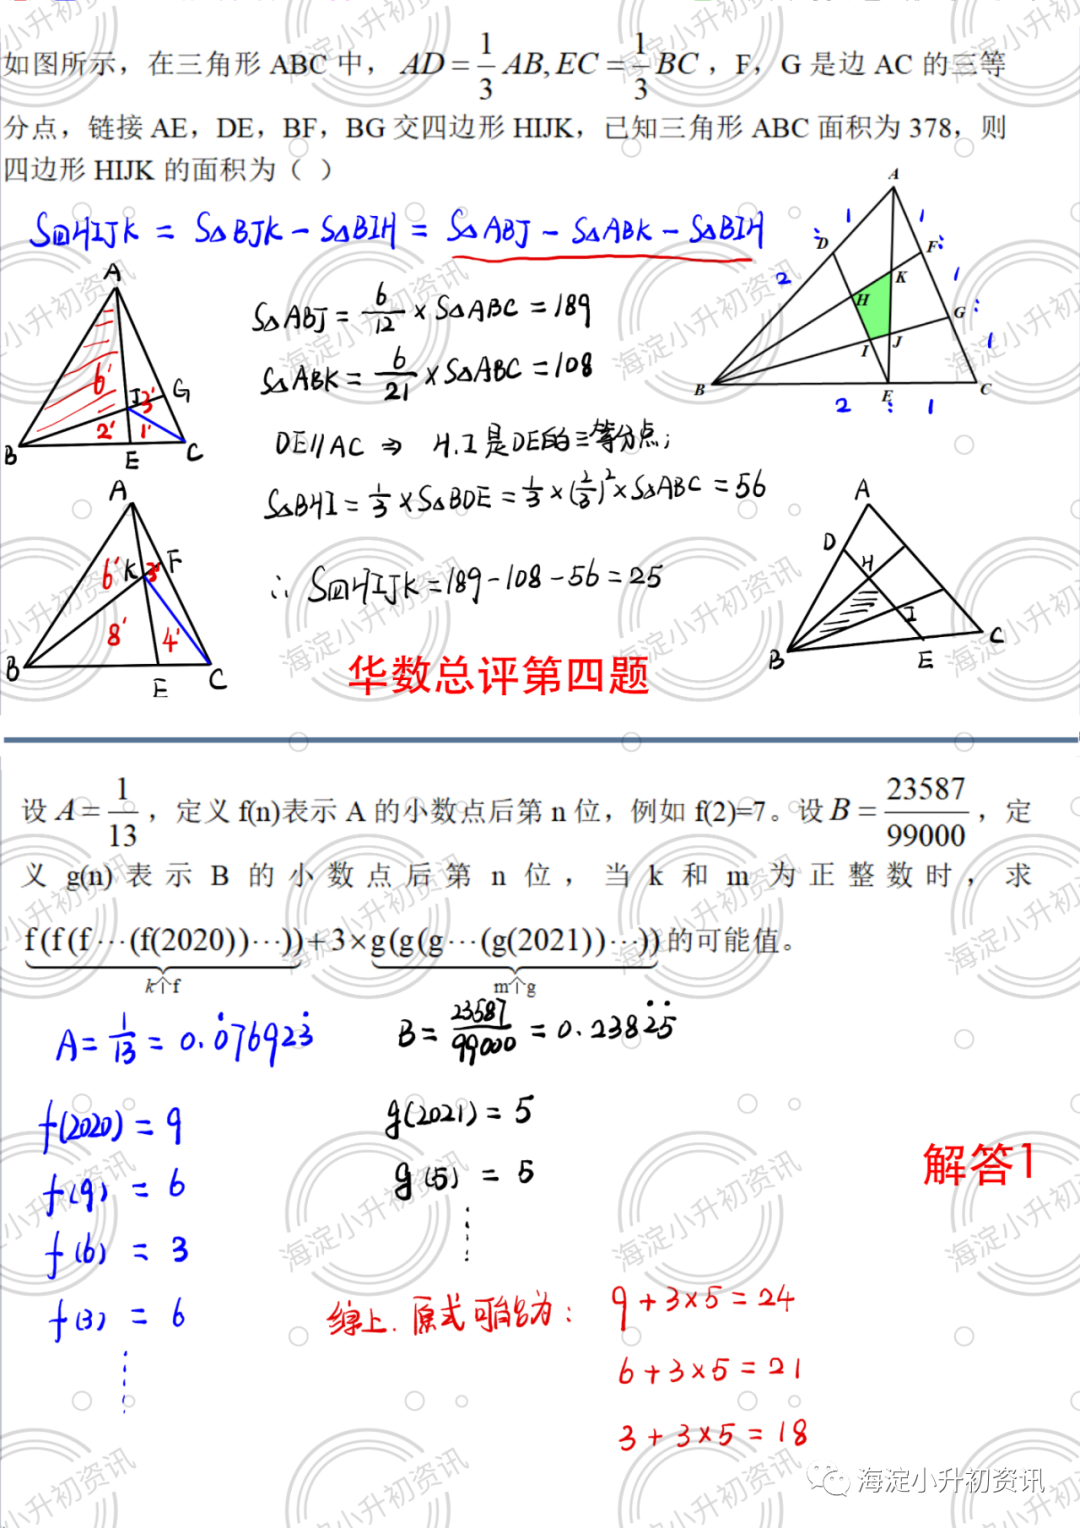 如图所示，在三角形 ABC 中，AD = 1/3 AB, EC = 1/3 BC，F，G 是边 AC 的三等
分点，链接 AE，DE，BF，BG 交四边形 HIJK，已知三角形 ABC 面积为 378，则
四边形 HIJK 的面积为（ ）
S四HIJK = S△BJK - S△BIH = S△ABJ - S△ABK - S△BIH
A
6'
I
3'
G
2'
1'
B
E
C
S△ABJ = 6/12 × S△ABC = 189
S△ABK = 6/21 × S△ABC = 108
DE//AC ⇒ H.I 是DE的三等分点；
S△BHI = 1/3 × S△BDE = 1/3 × (2/3)² × S△ABC = 56
∴ S四HIJK = 189 - 108 - 56 = 25
A
1
1
D
F
2
K
1
H
G
I
J
1
B
E
C
2 : 1
A
6'
K
3'
F
8'
4'
B
E
C
A
D
H
I
B
E
C
华数总评第四题
设 A = 1/13，定义 f(n)表示 A 的小数点后第 n 位，例如 f(2)=7。设 B = 23587/99000，定
义 g(n) 表示 B 的小数点后第 n 位，当 k 和 m 为正整数时，求
f(f(f⋯(f(2020))⋯))+3×g(g(g⋯(g(2021))⋯))的可能值。
k个f
m个g
A = 1/13 = 0.0̇76923̇
B = 23587/99000 = 0.2382̇5̇
f(2020) = 9
g(2021) = 5
f(9) = 6
g(5) = 5
f(6) = 3
f(3) = 6
解答1
综上. 原式可能为：
9+3×5=24
6+3×5=21
3+3×5=18
海淀小升初资讯